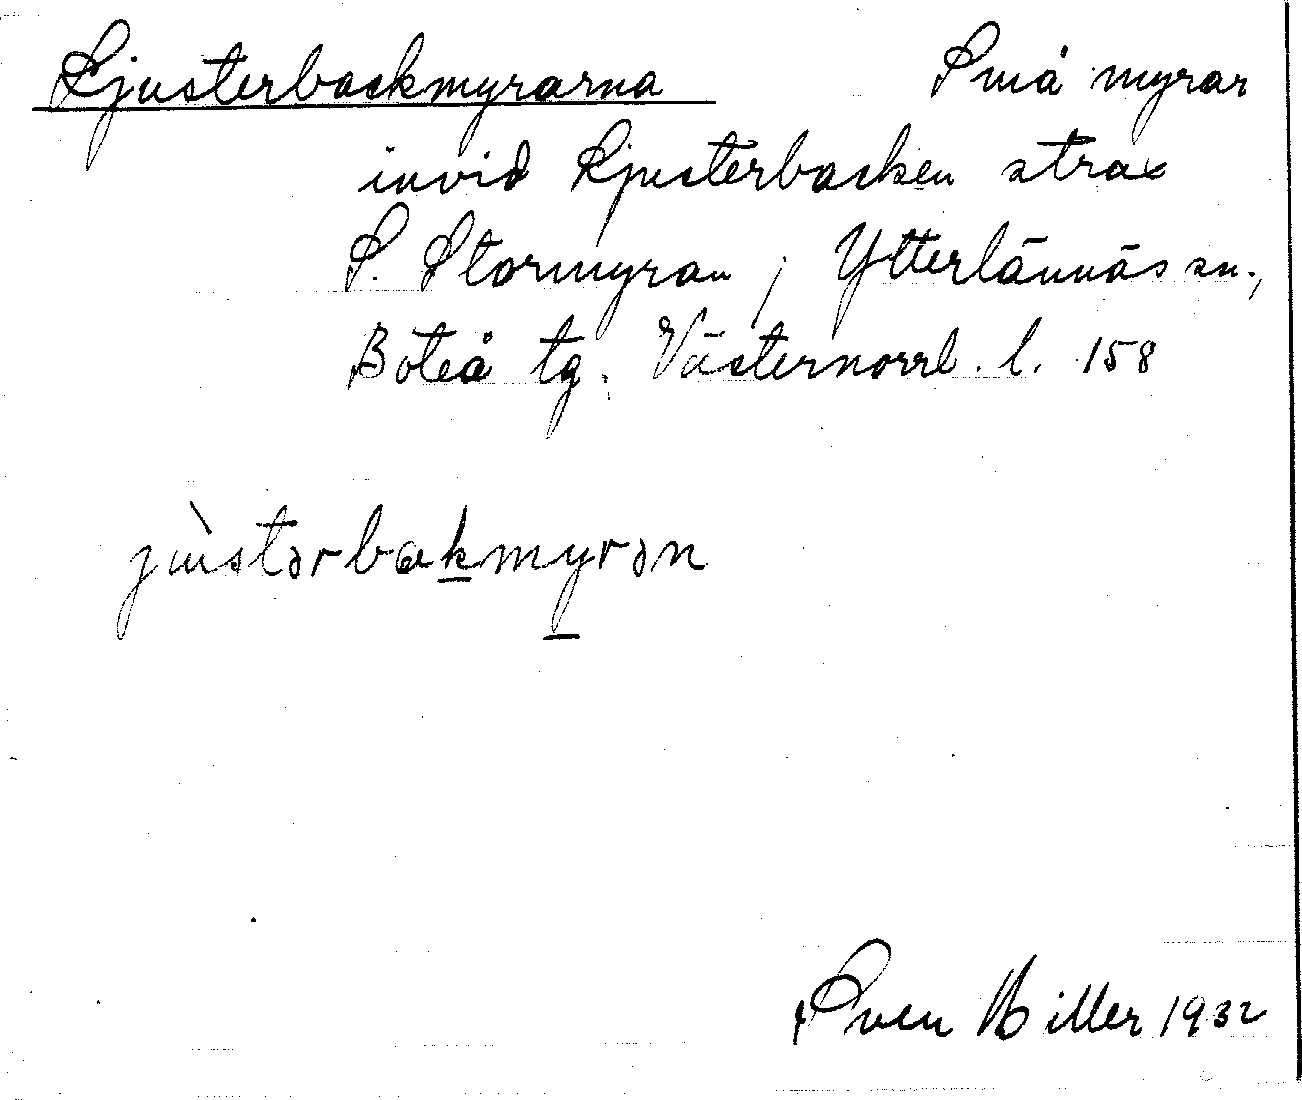 Ljusterbackmyrarna Små myrar
invid Ljusterbacken strax
S. Stormyran, Ytterlännäs sn.,
Boteå tg. Västernorrl. l. 158
jùstərbakmyrən
Sven Hiller 1932